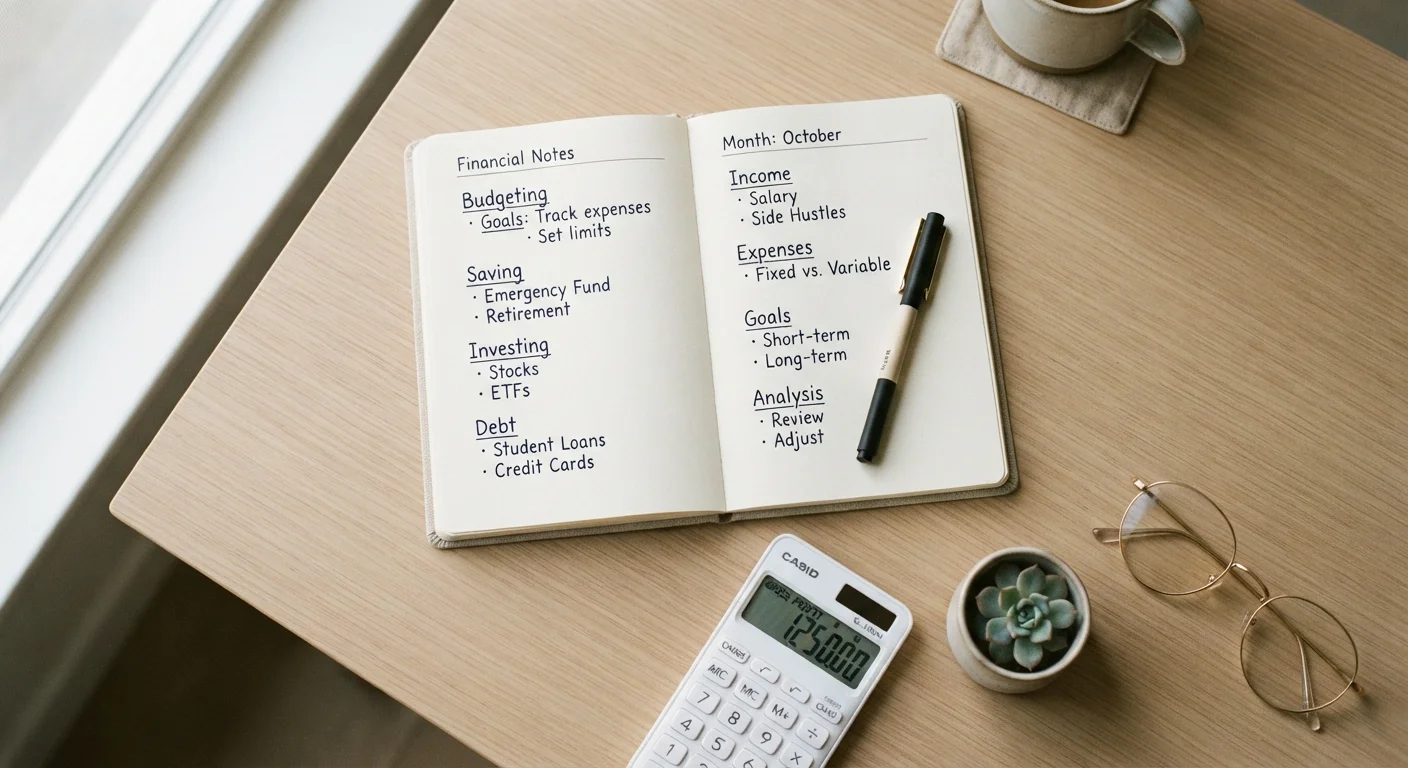 Financial Notes
Budgeting
· Goals: Track expenses
· Set limits
Saving
· Emergency Fund
· Retirement
Investing
· Stocks
· ETFs
Debt
· Student Loans
· Credit Cards
Month: October
Income
· Salary
· Side Hustles
Expenses
· Fixed vs. Variable
Goals
· Short-term
· Long-term
Analysis
· Review
· Adjust
CASIO
√ √
MC M+ ÷
7 8 9 ×
4 5 6
1